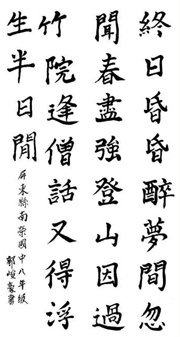 終日昏昏醉夢間忽
聞春盡強登山因過
竹院逢僧話又得浮
生半日閒
屏東縣南榮國中八年級
郭峻豪書